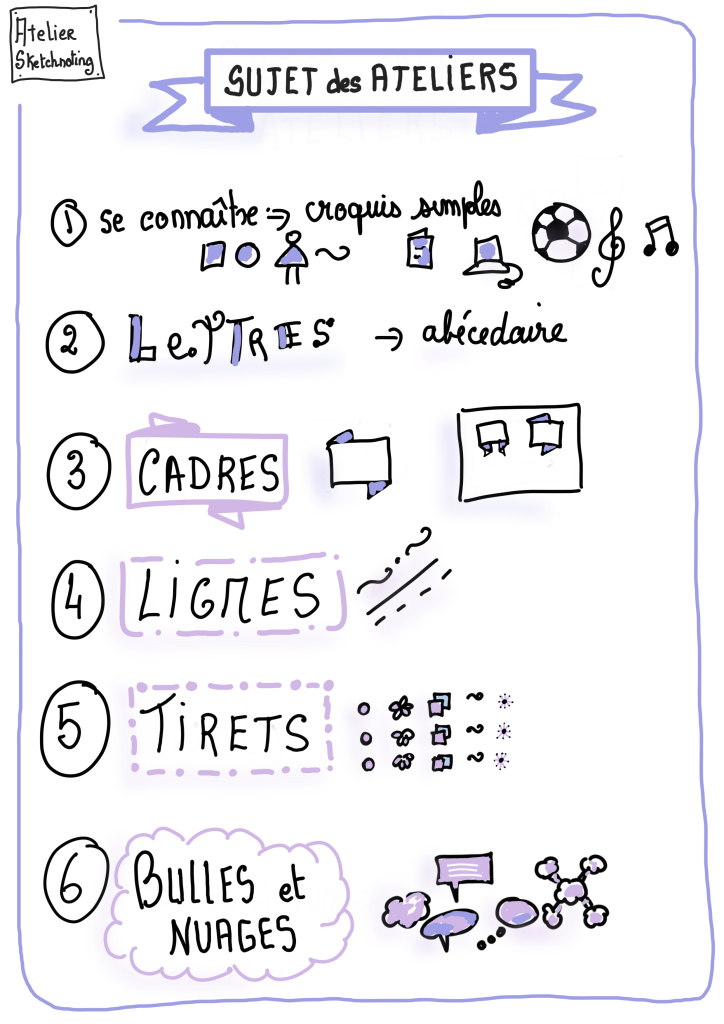 Atelier
Sketchnoting
SUJET des ATELIERS
1 se connaître => croquis simples
2 LeTTRES → abécédaire
3 CADRES
4 LiGNES
5 TiRETS
6 BULLES et
NUAGES